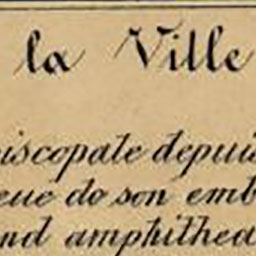 la Ville
iscopale depuis
eue do son emb
nd amphithea